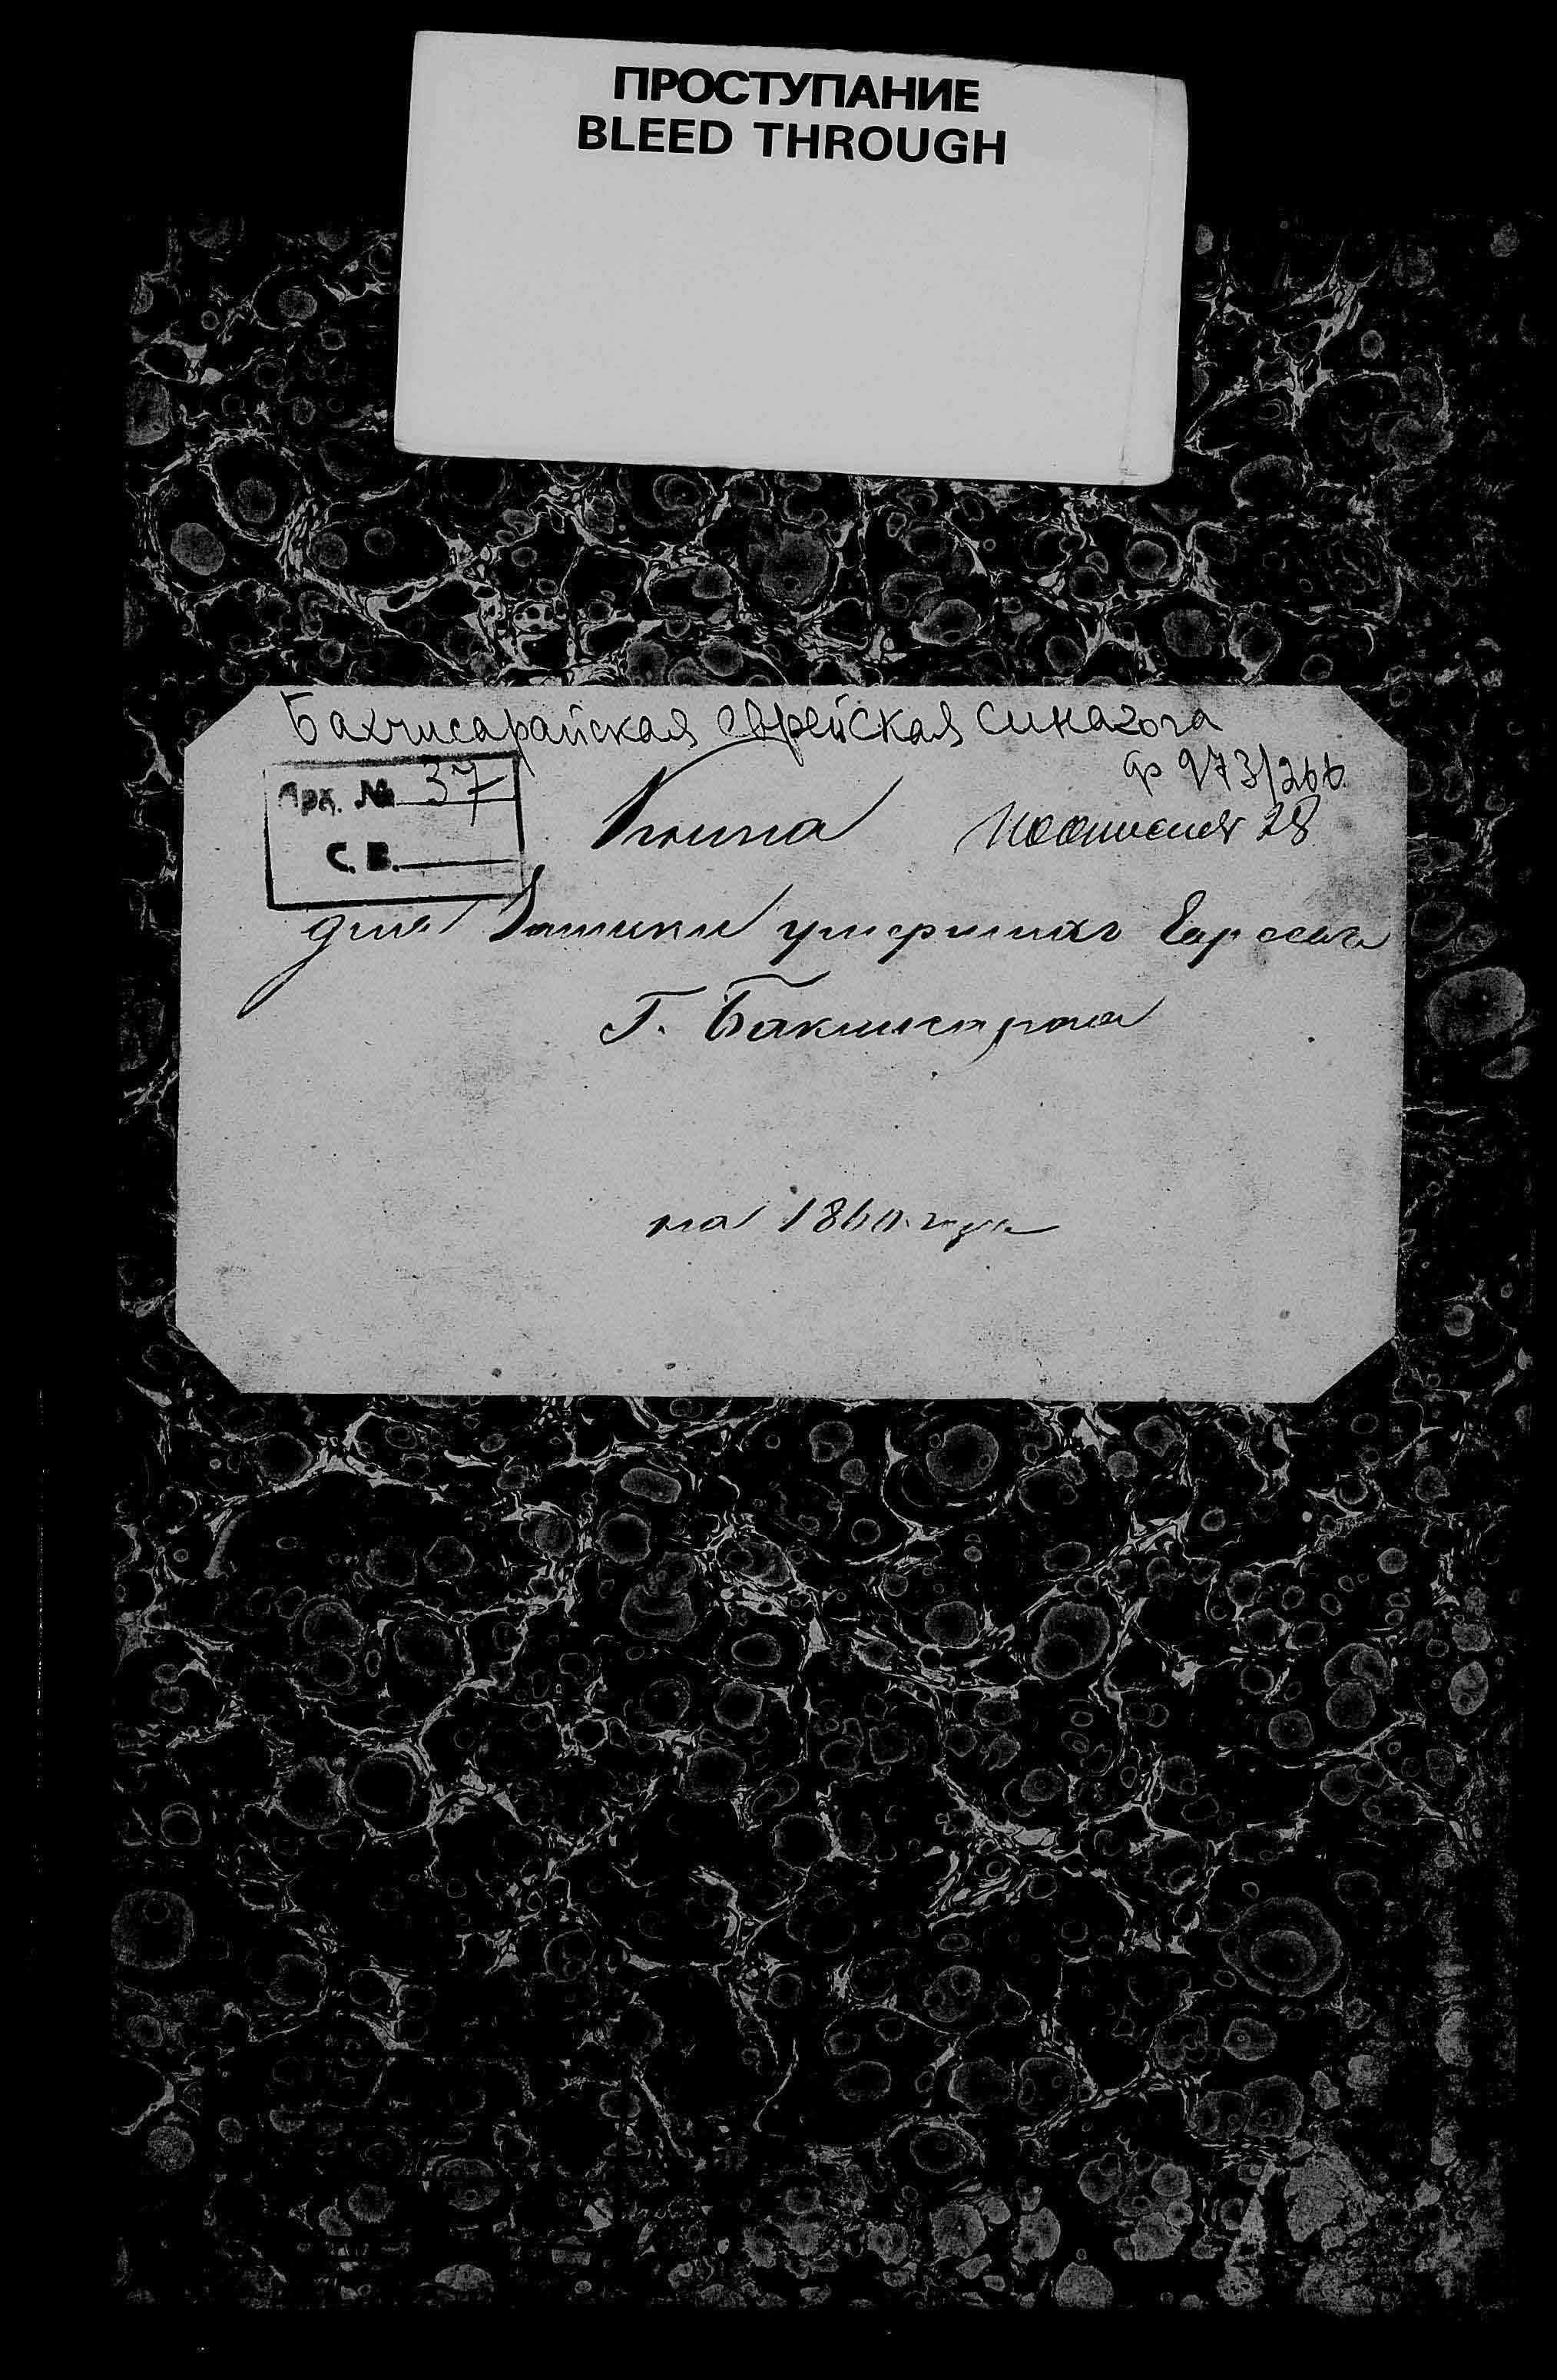 ПРОСТУПАНИЕ
BLEED THROUGH
Бахчисарайская еврейская синагога
Арх. № 37
ф 973/266
С. В.
Книга
28
для Записки умершихъ Евреевъ
Г. Бакчисарая
на 1860 годъ